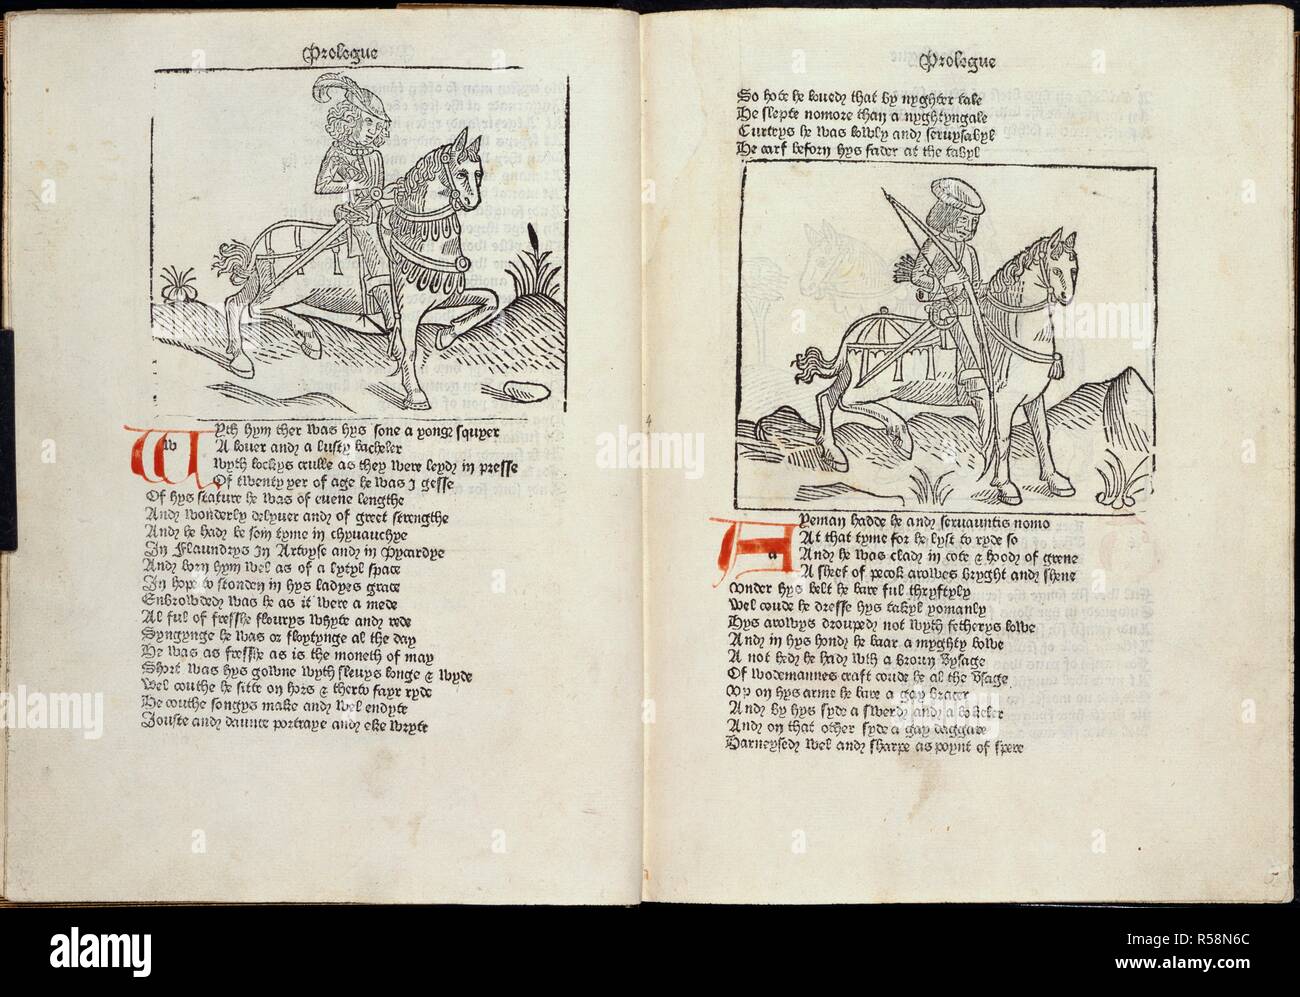 Prologue
Wyth hym ther was hys sone a yonge squyer
A louer and a lusty bacheler
Wyth lockys crulle as they were leyd in presse
Of twenty yer of age he was I gesse
Of hys stature he was of euene lengthe
And wonderly delyuer and of greet strengthe
And he had be som tyme in chyuauchye
In Flaundrys In Artoyse and in Pycardye
And born hym wel as of a lytyl space
In hope to stonden in hys ladyes grace
Enbrowded was he as it were a mede
Al ful of fresshe flourys whyte and rede
Syngynge he was or floytynge al the day
He was as fresshe as is the moneth of may
Short was hys gowne wyth sleuys longe & wyde
Wel couthe he sitte on hors & therto fayr ryde
He couthe songys make and wel endyte
Iouste and daunce portraye and eke wryte
Prologue
So hote he loued that by nyghter tale
He slepte nomore than a nyghtyngale
Curteys he was lowly and seruysabyl
He carf beforn hys fader at the tabyl
A yeman hadde he and seruauntis nomo
At that tyme for he lyst to ryde so
And he was clad in cote & hood of grene
A sheef of pecok arowes bryght and shene
Vnder hys belt he bare ful thryftyly
Wel coude he dresse hys takyl yomanly
Hys arowys drouped not wyth fetherys lowe
And in hys hond he baar a myghty bowe
A not hed he had wth a broun vysage
Of wodemannes craft coude he al the vsage
Vp on hys arme he bare a gay bracer
And by hys syde a swerd and a bokeler
And on that other syde a gay daggare
Harneysed wel and sharpe as poynt of spere
alamy
Image ID: R58N6C
www.alamy.com